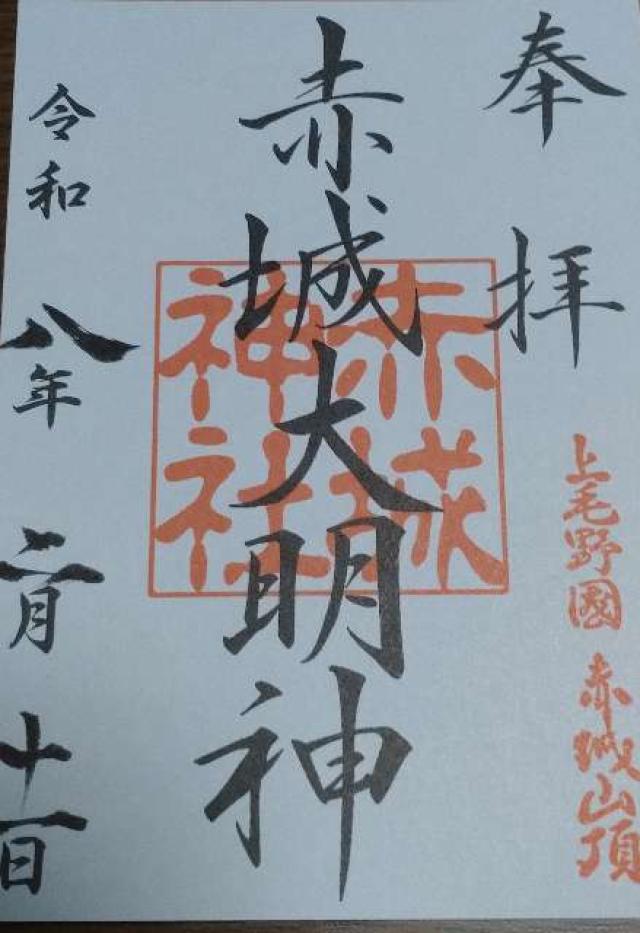 奉拝
上毛野國 赤城山頂
赤城大明神
赤城
神社
令和八年二月十一日